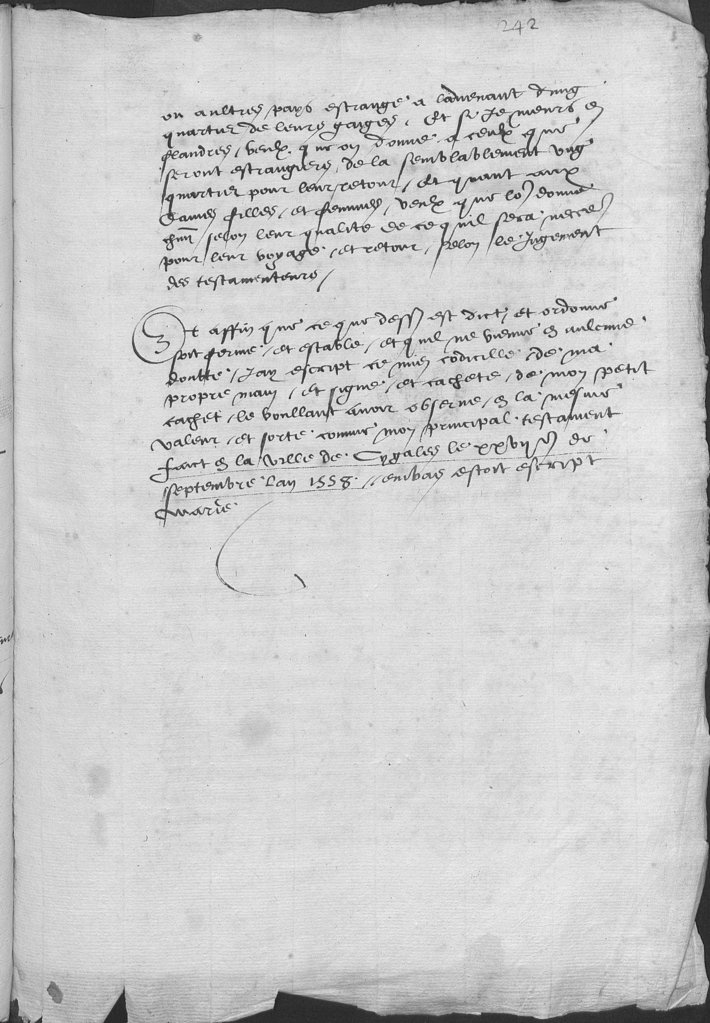 242
ou aultres pays estrange a ladvenant dung
quartier de leurs gaiges, Et si Je meurs en
flandres, veulx que on donne a ceulx que
seront estrangiers, de la semblablement ung
quartier pour leur retour, Et quant aux
dames filles, et femmes, veulx que lon donne
chun selon leur qualite de ce quil sera necess.
pour leur voyage, et retour, selon le Jugement
des testamenteurs,
Et affin que ce que dessus est dict, et ordonne
soit ferme, et estable, et quil ne vienne en aulcune
doubte, Jay escript ce mien codicille, de ma
propre main, et signe, et cachete, de mon petit
cachet, le voullant avoir observe, en la mesme
valeur, et sorte comme mon principal testament
faict en la ville de Cygales le xxvije de
septembre lan 1558, embas estoit escript
Marie